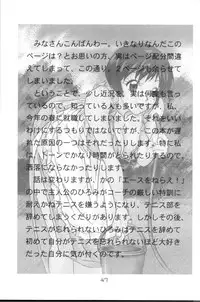 みなさんこんばんわー。いきなりなんだこの
ページは？とお思いの方、実はページ配分間違
えてしまって、この通り。２ページも余らせて
しまいました。
ということで、少し近況を、実は何度も言っ
ているので、知っている人も多いですが、私、
今年の春に就職してしまいました。この本が遅
れた原因の一つはそれだったりします。特に私
は、ドーンでかなり時間がとられたりするので、
洒落にならなかったりします。
話は変わりますが、「エースをねらえ！」
の中で主人公のひろみがコーチの厳しい特訓に
耐えかねテニスを嫌いようになり、テニス部を
辞めてしまうくだりがあります。しかしその後、
テニスが忘れられないひろみは、テニスを辞めて
初めて自分がテニスを忘れられないほど大好き
だった自分に気が付くのです。
47